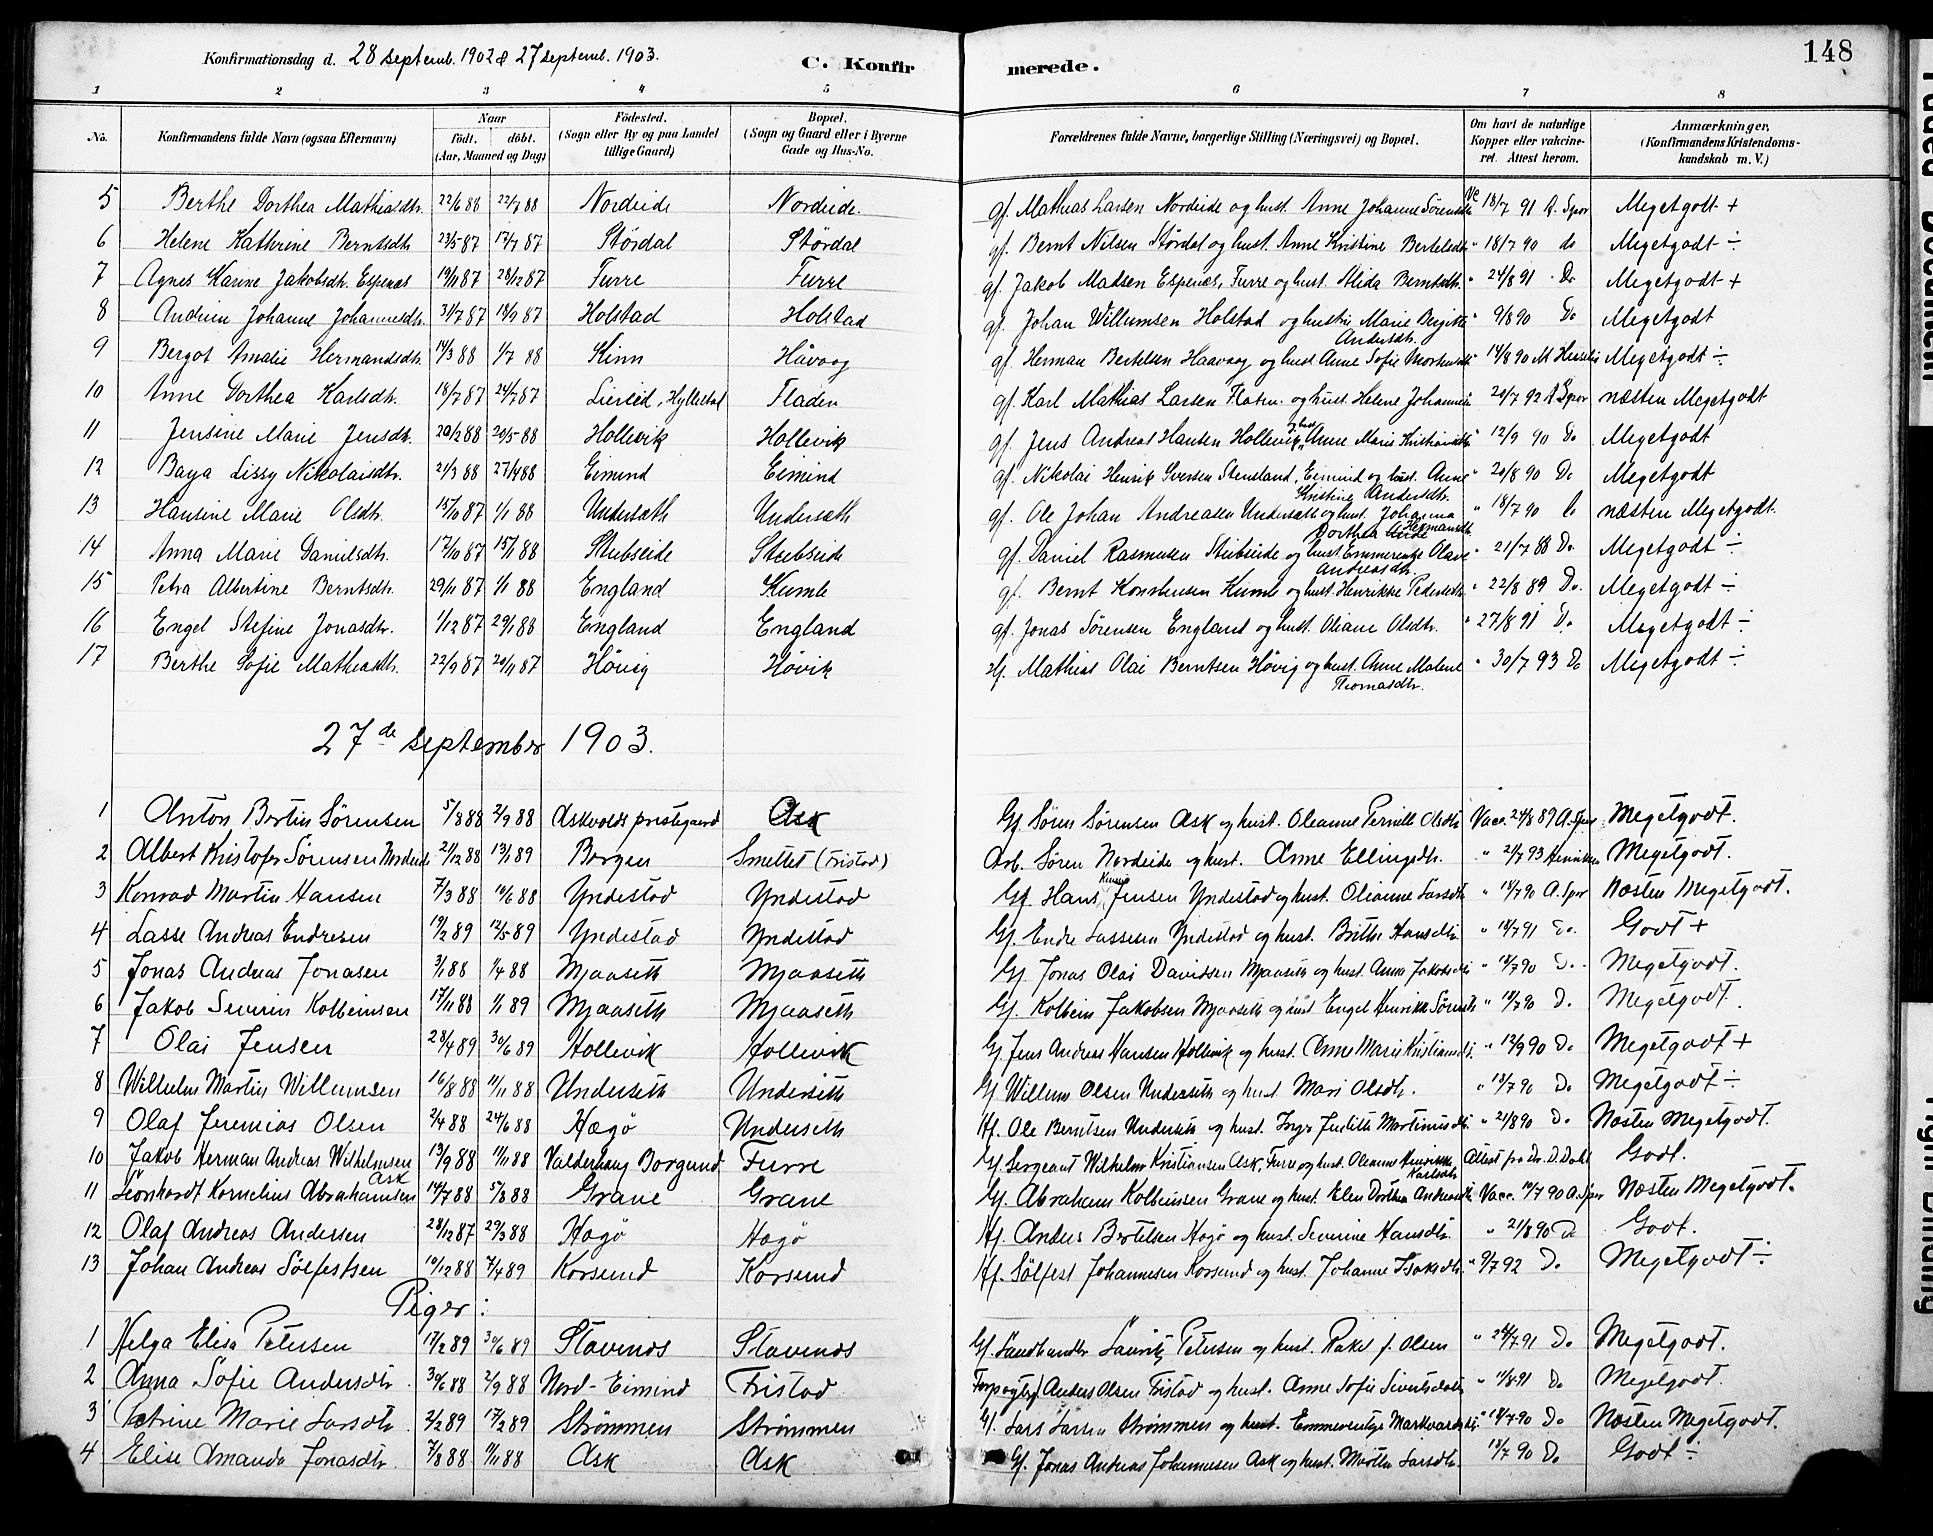 Konfirmationsdag d. 28 septemb. 1902 & 27 septemb. 1903. C. Konfirmerede. 148
1 2 3 4 5 6 7 8
No. Konfirmandens fulde Navn (ogsaa Efternavn) Naar født. døbt. (Aar, Maaned og Dag) Fødested. (Sogn eller By og paa Landet tillige Gaard) Bopæl. (Sogn og Gaard eller i Byerne Gade og Hus-No. Forældrenes fulde Navne, borgerlige Stilling (Næringsvei) og Bopæl. Om havt de naturlige Kopper eller vakcineret. Attest herom. Anmærkninger, (Konfirmandens Kristendomskundskab m. V.)
5 Berthe Dorthea Mathiasdtr. 22/6 88 22/7 88 Nordeide Nordeide. gf. Mathias Larsen Nordeide og hust. Anne Johanne Sørensdtr 18/7 91 A. Spor Megetgodt +
6 Helene Kathrine Berntsdtr 23/5 87 17/7 87 Størdal Størdal gf. Bernt Nilsen Størdal og hust. Anne Kristine Bertelsdtr " 18/7 90 do Megetgodt ÷
7 Agnes Karine Jakobsdtr. Espenæs 19/11 87 28/12 87 Furre Furre gf. Jakob Madsen Espenæs, Furre og hust. Alida Berntsdtr. " 24/8 91 Do Megetgodt +
8 Andrine Johanne Johannesdtr. 31/7 87 18/9 87 Holstad Holstad gf. Johan Willumsen Holstad og hustru Marie Bergitte Andersdtr. " 9/8 90 Do Megetgodt
9 Bergot Amalie Hermandsdtr. 14/3 88 1/7 88 Kinn Håvaag gf. Herman Bertelsen Haavaag og hust Anne Sofie 14/8 90 Megetgodt ÷
10 Anne Dorthea Karlsdtr. 18/7 87 24/7 87 Hyllestad Fladen gf. Karl Mathias Larsen og hust. Helene 20/7 92 A Spor næsten Megetgodt
11 Jensine Marie Jensdtr. 20/2 88 20/5 88 Hollevik Hollevik gf. Jens Andreas Hansen Hollevik og hust Anne Marie Kristiansdtr " 12/9 90 Do Megetgodt
12 Baya Lissy Nikolaisdtr. 21/3 88 27/4 88 Eimind Eimind gf. Nikolai Henrik Iversen Stensland, Eimind og hust. Anne Kristine Andersdtr. " 20/8 90 Do Megetgodt
13 Hansine Marie Olsdtr. 15/10 87 1/1 88 Undersæth Undersæth gf. Ole Johan Andreasen Undersæth og hust. Johanna Dorthea Hermansdtr " 18/7 90 næsten Megetgodt.
14 Anna Marie Danielsdtr. 17/10 87 15/1 88 Stubseide Stubseide gf. Daniel Rasmusen Stubseide og hust. Emmerentze Olave Andreasdtr. " 21/7 88 Do. Megetgodt ÷
15 Petra Albertine Berntsdtr. 29/11 87 1/1 88 England Kumle gf. Bernt Kumle og hust. Henrikke Pedersdtr " 22/8 89 Do. Megetgodt ÷
16 Engel Stefine Jonasdtr. 1/12 87 29/1 88 England England gf. Jonas Sørensen England og hust. Oliane Olsdtr. " 27/8 91 Do Megetgodt ÷
17 Berthe Sofie Mathiasdtr. 22/9 87 20/11 87 Høvig Høvik Hf. Mathias Olai Berntsen Høvig og hust. Anne Malene Thomasdtr. " 30/7 93 Do Megetgodt ÷
27de september 1903.
1 Anton Bertin Sørensen 5/8 88 2/9 88 Askvolds prestegaard Ask Gf. Søren Sørensen Ask og hust. Oleanne Pernille Olsdtr Vacc. 24/8 89 A. Spor Megetgodt.
2 Albert Kristofer Sørensen Nordeide 21/12 88 13/1 89 Borgen Smettet (Fristad) Arb. Søren Nordeide og hust. Anne Ellingsdtr. " 2/7 93 Henriksen Megetgodt.
3 Konrad Martin Hansen 7/3 88 10/6 88 Yndestad Yndestad Gf. Hans Jensen Yndestad og hust. Olianne Larsdtr " 18/7 90 A. Spor Næsten Megetgodt.
4 Lasse Andreas Endresen 19/2 89 12/5 89 Yndestad Yndestad Gf. Endre Lassesen Yndestad og hust. Brithe Hansdtr. " 18/7 91 Do. Godt +
5 Jonas Andreas Jonasen 3/1 88 1/4 88 Mjaaseth Mjaaseth Gf. Jonas Olai Davidsen Mjaaseth og hust. Anna Jakobsdtr " 18/7 90 Do. Megetgodt.
6 Jakob Severin Kolbeinsen 17/11 88 1/1 89 Mjaaseth Mjaaseth Gf. Kolbein Jakobsen Mjaaseth og hust Engel Henrikke Sørensdtr " 18/7 90 Do. Megetgodt.
7 Olai Jensen 28/4 89 30/6 89 Hollevik Hollevik Gf. Jens Andreas Hansen Hollevik og hust. Anne Marie Kristiansdtr. " 12/9 90 Do Megetgodt +
8 Wilhelm Martin Willumsen 16/8 88 11/11 88 Underseth Underseth Gf Willum Olsen Underseth og hust Mari Olsdtr. " 18/7 90 Do Megetgodt ÷
9 Olaf Jeremias Olsen 2/4 88 24/6 88 Hægø Underseth Hf. Ole Berntsen Underseth og hust. Inger Judith Martinusdtr " 21/8 90 Do Næsten Megetgodt.
10 Jakob Herman Andreas Wilhelmsen Ask 13/9 88 11/11 88 Valderhaug Borgund Furre Gf. Sergeant Wilhelm Kristiansen Ask, Furre og hust. Oleanne Henrikke Karlsdtr Attest fra Dr. D. Dahl Godt.
11 Leonhardt Kornelius Abrahamsen 14/7 88 5/8 88 Grane Grane Gf. Abraham Kolbeinsen Grane og hust. Elen Dorthea Andreasdtr. Vacc. 10/7 90 A. Spor Næsten Megetgodt.
12 Olaf Andreas Andersen 28/12 87 29/3 88 Hægø Hægø Hf. Anders Bertelsen Hægø og hust. Severine Hansdtr. " 21/8 90 Do Godt.
13 Johan Andreas Sølfestsen 10/12 88 7/4 89 Korssund Korssund Hf. Sølfest Johannesen Korssund og hust. Johanne Isaksdtr. " 9/7 92 Do Megetgodt ÷
Piger:
1 Helga Elisa Petersen 17/2 89 30/6 89 Stavenæs Stavenæs Gf. Landhandler Lauritz Petersen og hust. Rakel f. Olsen " 24/7 91 Do Megetgodt.
2 Anna Sofie Andersdtr. 30/6 88 2/9 88 Nord-Eimind Fristad Forpagter Anders Olsen Fristad og hust. Anne Sofie Sivertsdatter " 11/8 91 Do Megetgodt.
3 Petrine Marie Larsdtr. 2/2 89 17/2 89 Strømmen Strømmen Gf. Lars Larsen Strømmen og hust. Emmerentze Markvardsdtr. " 18/7 90 Do Næsten Megetgodt.
4 Elise Amanda Jonasdtr. 7/8 88 11/11 88 Ask Ask Gf. Jonas Andreas Johannesen Ask og hust. Marthe Larsdtr. 18/7 90 Do Godt ÷